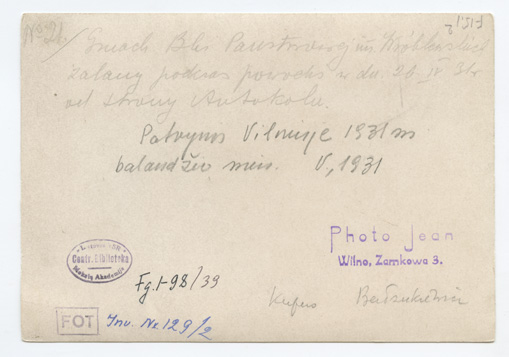 № 21.
Gmach Bbl. Państwowej im. Wróblewskich
zalany podczas powodzi w dn. 26 IV 31 r
od strony Antokolu.
Potvynis Vilniuje 1931 m
balandžio mėn. V, 1931
Photo Jean
Wilno, Zamkowa 3.
Centr. Biblioteka
Mokslų Akademija
Fg. 1-98/39
FOT
Inv. № 129/2